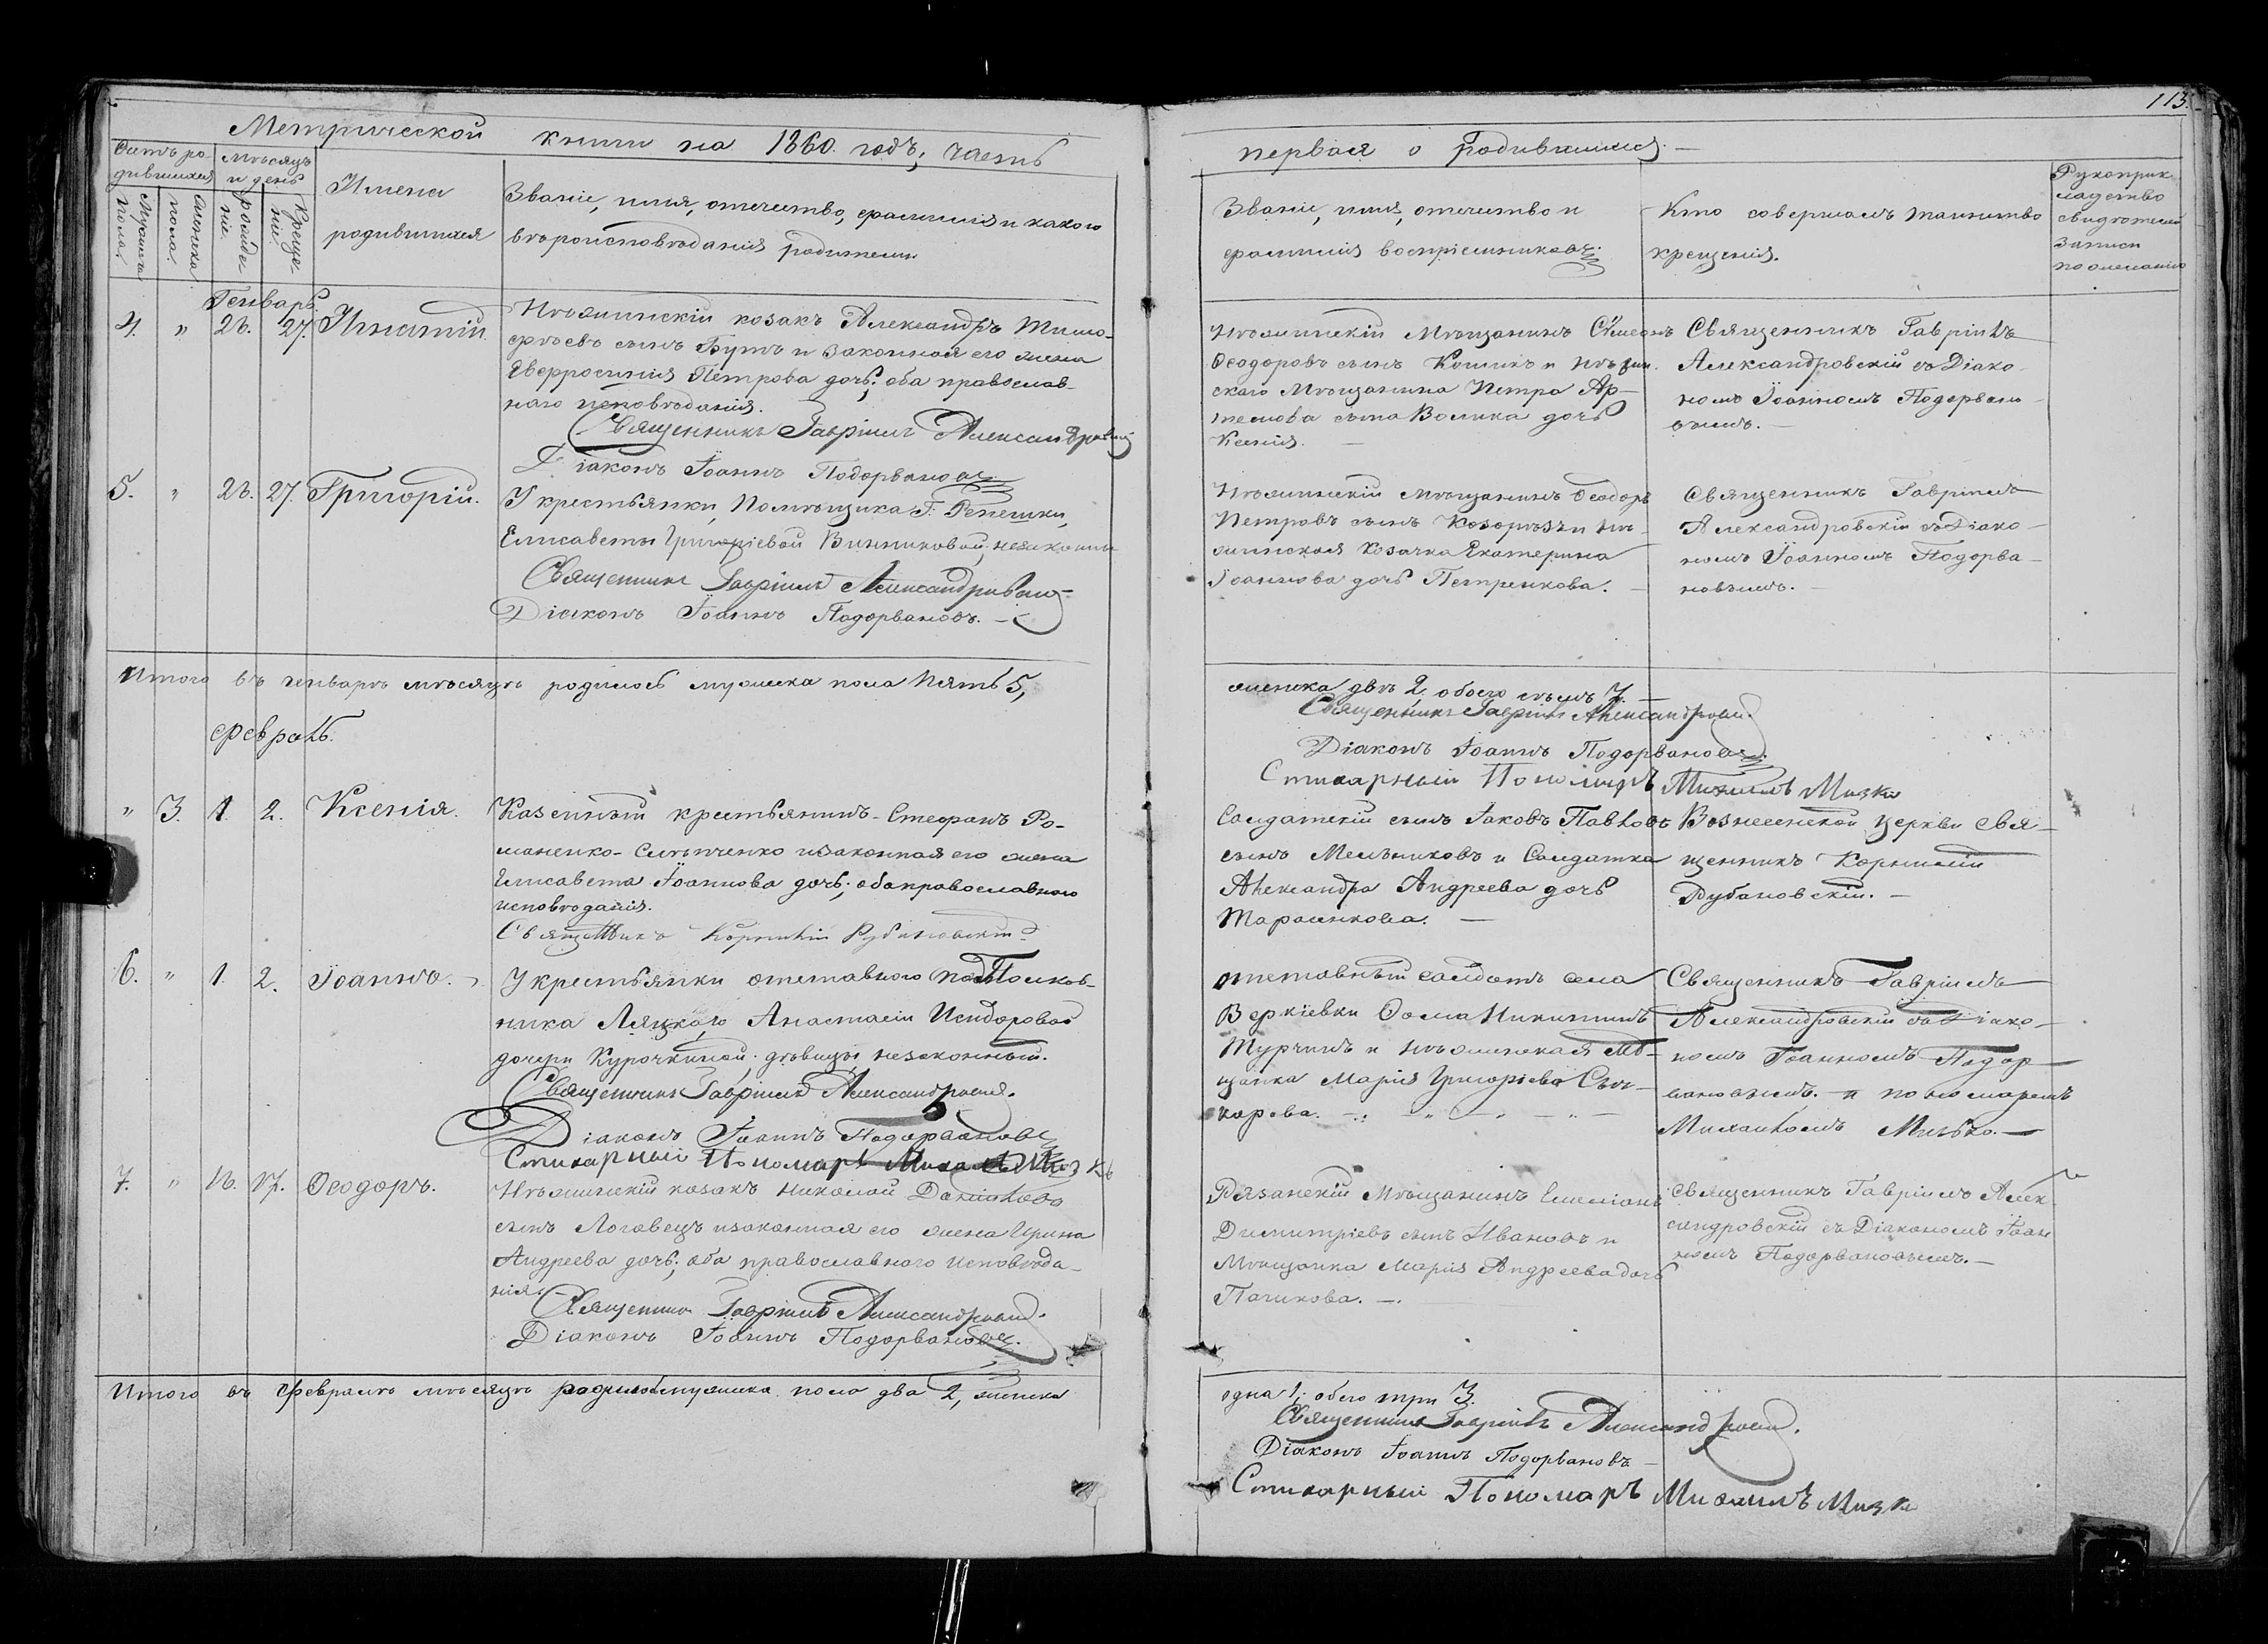 113.
Метрической книги на 1860. годъ, часть
первая о родившихся.
Счетъ ро-
дившихся
Мужеска
пола.
Женска
пола.
Мѣсяцъ
и день
рожде
нія.
Креще
нія.
Имена
родившихся
Званіе, имя, отечество, фамилія и какого
вѣроисповѣданія родители
Званіе, имя, отечество и
фамилія воспріемниковъ.
Кто совершалъ таинство
крещенія.
Рукоприк
ладство
свидѣтелей
записи
по желанію
Генварь.
4. " 26. 27. Игнатій.
Нѣжинскій козакъ Александръ Тимо-
фѣевъ сынъ Бутъ и законная его жена
Евфросинія Петрова дочь; оба православ-
наго исповѣданія.
Священникъ Гавріилъ Александровскій
Діаконъ Іоаннъ Подорвановъ
Нѣжинскій мѣщанинъ Сѵмеонъ
Ѳеодоровъ сынъ и Нѣжин.
скаго мѣщанина Петра Ар-
темова сына Волика дочь
Ксенія. —
Священникъ Гавріилъ
Александровскій съ Діако-
номъ Іоанномъ Подорван-
овымъ. —
5. " 26. 27. Григорій.
У крестьянки, Помѣщика Г. Репешки,
Елисаветы Григоріевой Винниковой, незаконны
Священникъ Гавріилъ Александровскій
Діаконъ Іоаннъ Подорвановъ. —
Нѣжинскій мѣщанинъ Ѳеодоръ
Петровъ сынъ Козорѣзъ и Нѣ-
жинская козачка Екатерина
Іоаннова дочь Петренкова. —
Священникъ Гавріилъ
Александровскій съ Діако-
номъ Іоанномъ Подорва-
новымъ. —
Итого въ генварѣ мѣсяцѣ родилось мужеска пола пять 5,
женска двѣ 2, обоего семь 7. —
Священникъ Гавріилъ Александровскій.
Діаконъ Іоаннъ Подорвановъ.
Стихарный Пономарь Михаилъ Мизко
февраль.
" 3. 1. 2. Ксенія.
Казенный крестьянинъ Стефанъ Ро-
маненко- и законная его жена
Елисавета Іоаннова дочь; оба православнаго
исповѣданія.
Священникъ Корнилій Рубановскій
Солдатскій сынъ Іаковъ Павловъ
сынъ Мельниковъ и Солдатка
Александра Андреева дочь
Тарасенкова. —
Вознесенской церкви Свя-
щенникъ Корнилій
Рубановскій. —
6. " 1. 2. Іоаннъ.
У крестьянки отставного подПолков-
ника Анастасіи Исидоровой
дочери Курочкиной дѣвицы незаконный.
Священникъ Гавріилъ Александровскій.
Діаконъ Іоаннъ Подорвановъ
Стихарный Пономарь Михаилъ Мизко
отставный солдатъ села
Веркіевки Ѳома Никитинъ
Турчинъ и Нѣжинская Мѣ-
щанка Марія Григоріева
Священникъ Гавріилъ
Александровскій съ Діако-
номъ Іоанномъ Подор-
вановымъ. — и пономаремъ
Михаиломъ Мизько. —
7. " 16. 17. Ѳеодоръ.
Нѣжинскій козакъ Николай Даніиловъ
сынъ Логовецъ и законная его жена Ирина
Андреева дочь; оба православнаго исповѣда-
нія.
Священникъ Гавріилъ Александровскій.
Діаконъ Іоаннъ Подорвановъ.
Рязанскій мѣщанинъ Емеліанъ
Димитріевъ сынъ Ивановъ и
Мѣщанка Марія Андреева дочь
Пачикова. —.
Священникъ Гавріилъ Алек-
сандровскій съ Діакономъ Іоан
номъ Подорвановымъ. —
Итого въ февралѣ мѣсяцѣ родилось мужеска пола два 2, женска
одна 1; обоего три 3.
Священникъ Гавріилъ Александровскій.
Діаконъ Іоаннъ Подорвановъ
Стихарный Пономарь Михаилъ Мизко